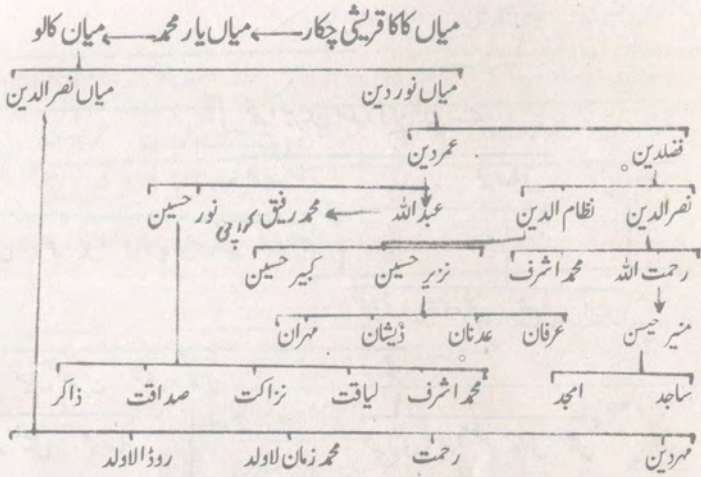 میاں کاکا قریشی چکار ← میاں یار محمد ← میان کالو
میاں نور دین میاں نصر الدین
فضلدین عمردین
نصر الدین نظام الدین عبد اللہ محمد رفیق نور حسین
رحمت اللہ محمد اشرف نزیر حسین کبیر حسین
منیر حیسن عرفان عدنان ذیشان مہران
ساجد امجد محمد اشرف لیاقت نزاکت صداقت ذاکر
مہردین رحمت محمد زمان لاولد روڈا لاولد